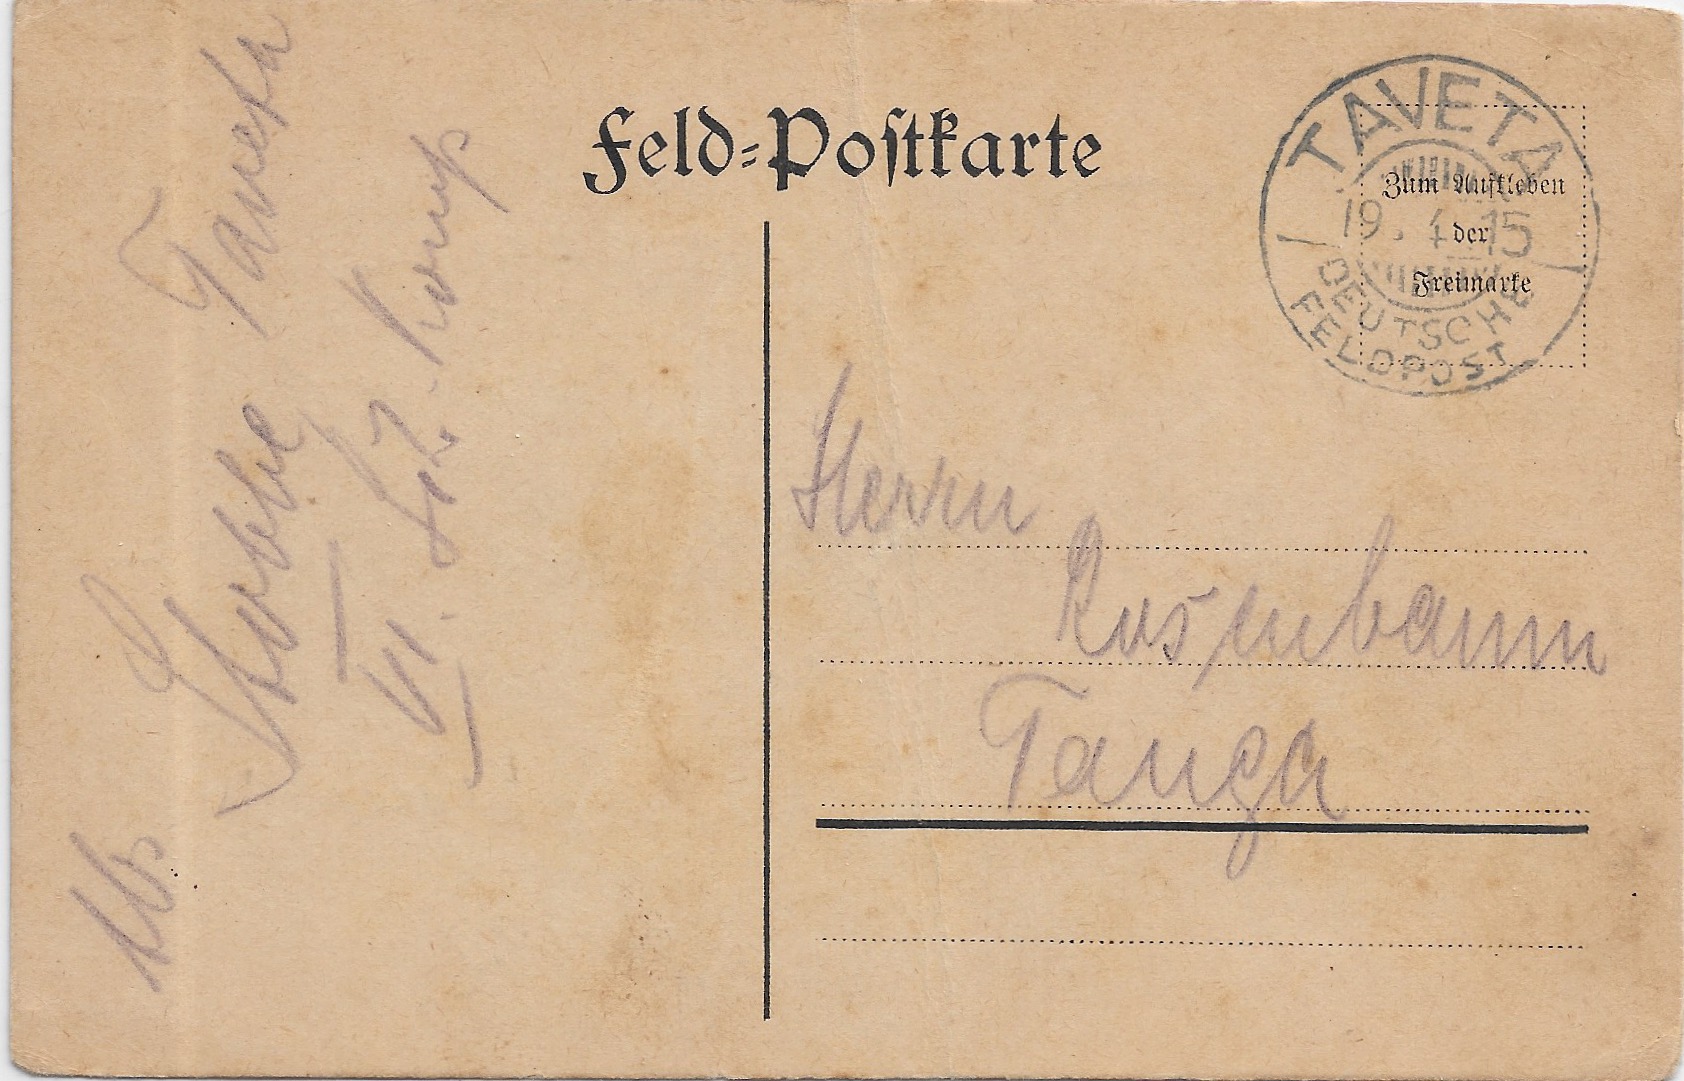 Feld-Postkarte
TAVETA
19. 4. 15
DEUTSCHE
FELDPOST
Zum Aufkleben
der
Freimarke
Herrn
Rosenbaum
Tanga
Abs
Taveta
VI. Sch. Komp